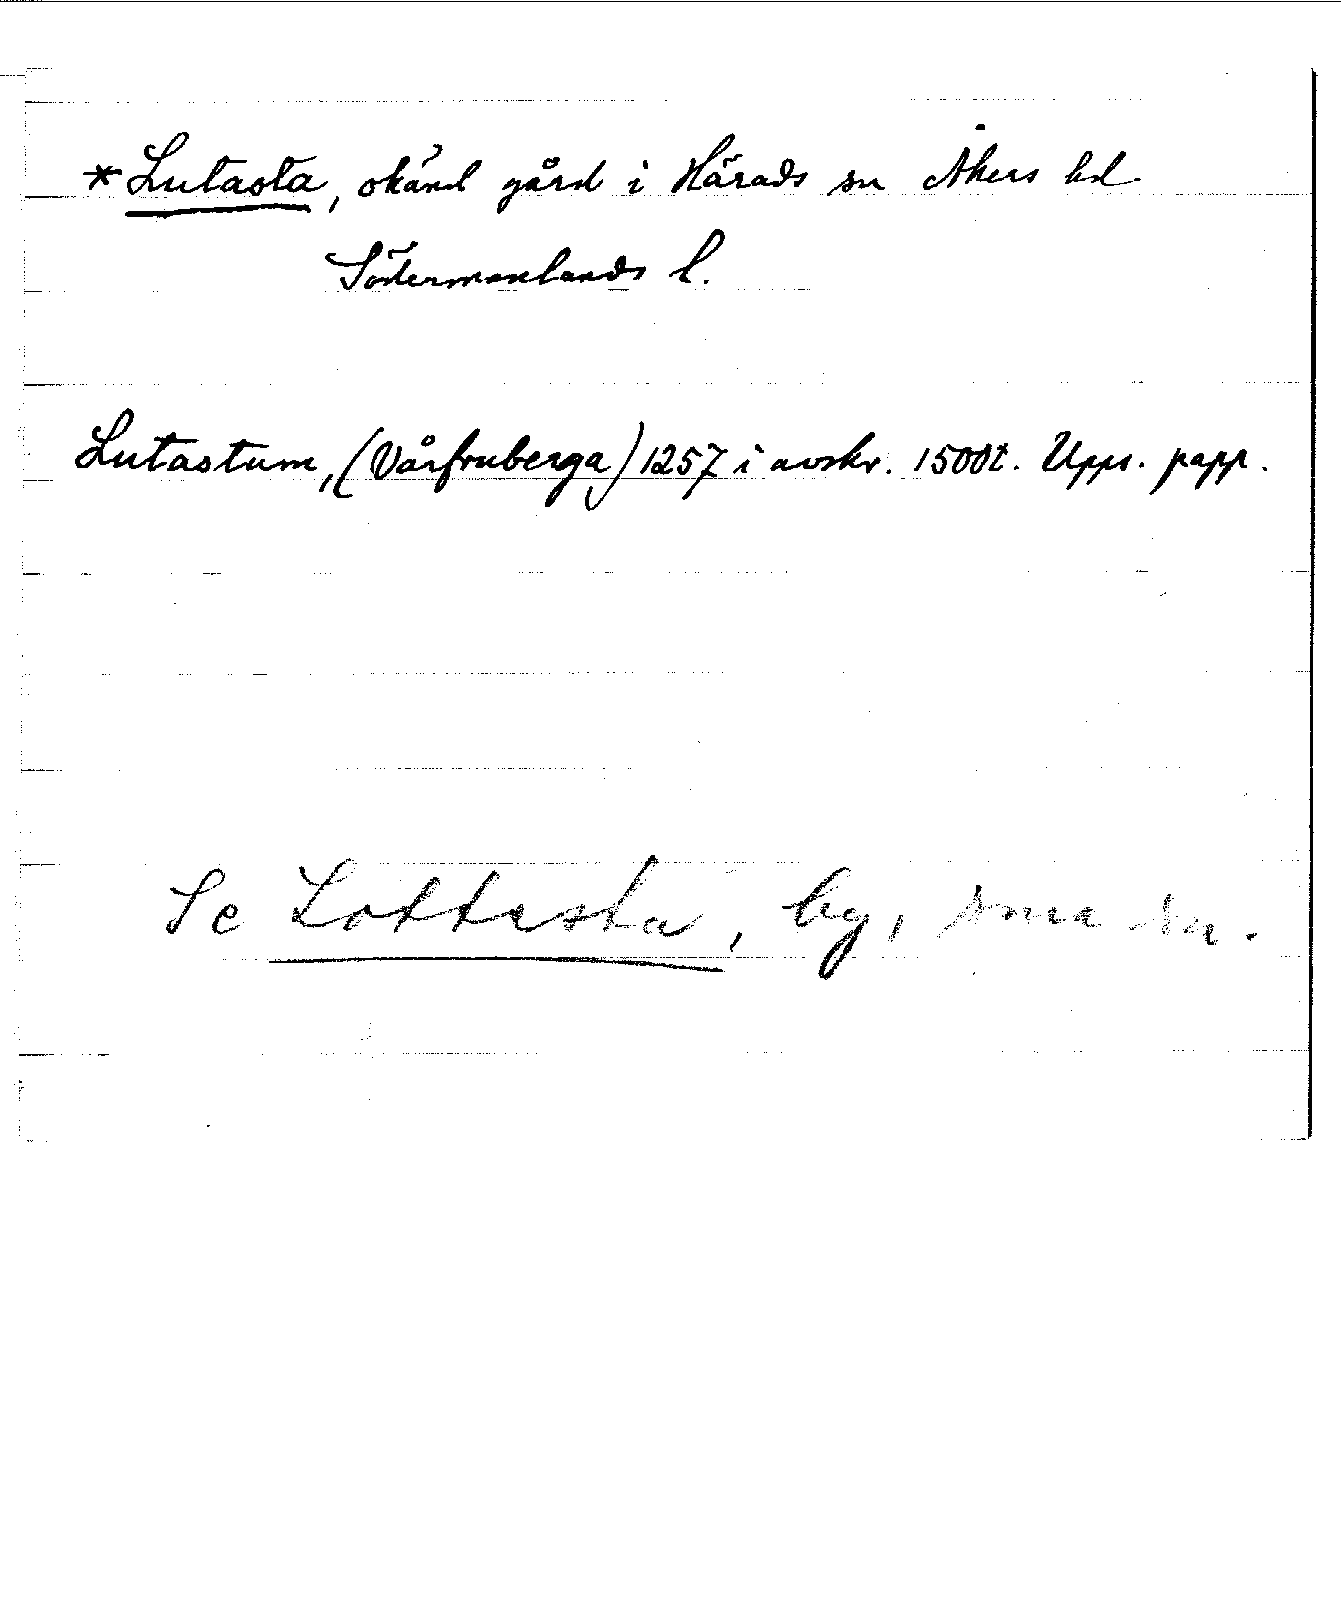 *Lutasta, okänd gård i Härads sn Åkers hd
Södermanlands l.
Lutastum, (Vårfruberga) 1257 i avskr. 1500t. Upps. papp.
Se Lottesta, by, sma sn.